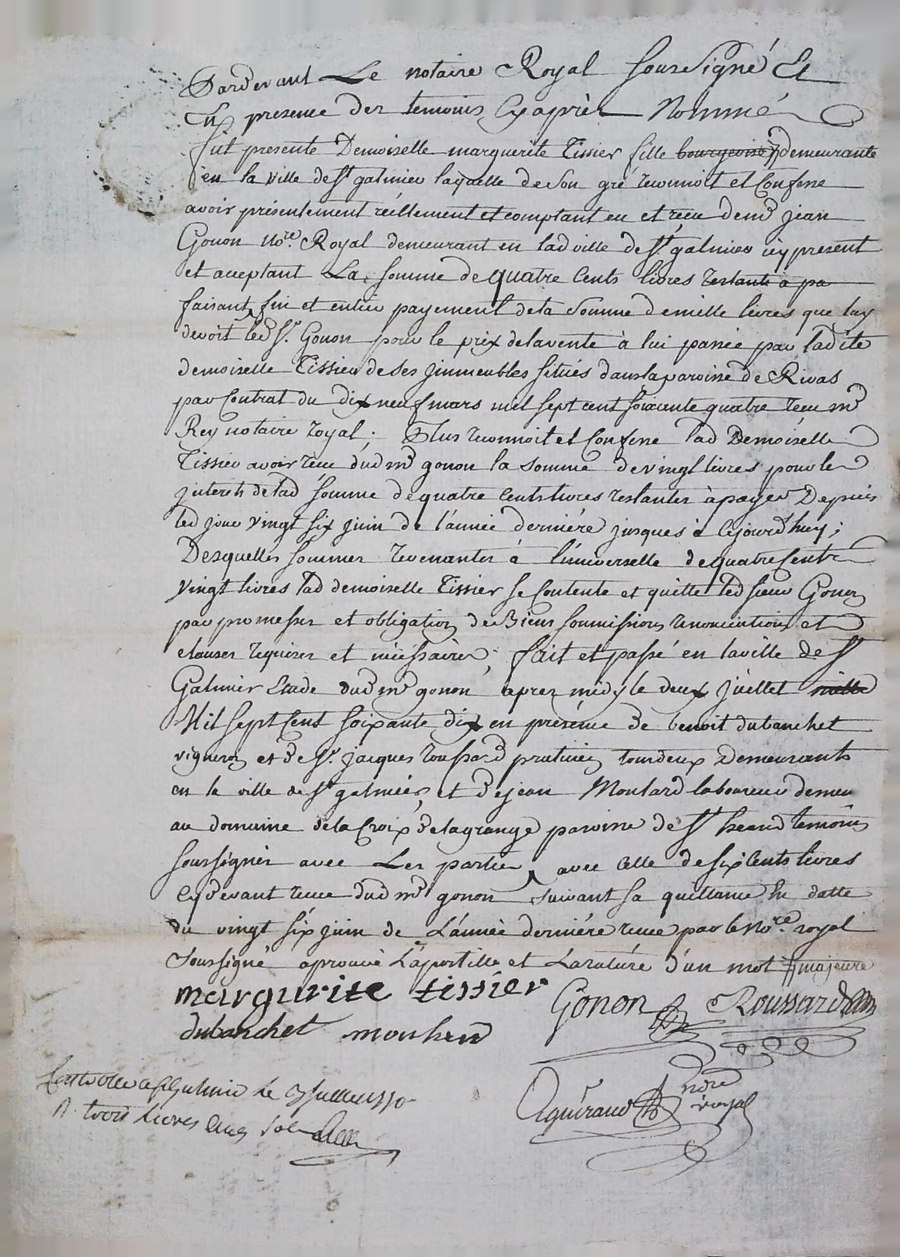 Pardevant Le notaire Royal soussigné Et
En presence des temoins Cyaprès Nommé
fut presente Demoiselle marguerite Tissier fille bourgeoise # demeurante
en la ville de St galmier laquelle de son gré reconnoit et Confesse
avoir présentement réellement et comptant eu et reçu de me jean
Gonon nore. Royal demeurant en lad ville de St galmier icy present
et acceptant La somme de quatre Cents livres restante à pa
faisant fin et entier payement de la somme de mille livres que luy
devoit led Sr. Gonon pour le prix de la vente à lui passée par ladite
demoiselle Tissier de ses jmmeubles situés dans la paroisse de Rivas
par Contrat du dix neuf mars mil sept cent soixante quatre recu me
Rey notaire royal; Plus reconnoit et Confesse lad Demoiselle
Tissier avoir recu dud me gonon la somme de vingt livres pour les
jnterets de lad somme de quatre Cents livres restantes à payer Depuis
led jour vingt six juin de l'année derniére jusques à cejourd'huy;
Desquelles sommes revenantes à l'universelle de quatre Cents
vingt livres lad demoiselle Tissier se Contente et quitte led sieur Gonon
par promesses et obligation de Biens soumissions renonciations et
clauses requises et nécéssaires; fait et passé en la ville de St
Galmier Etude dud me gonon apres midy le deux juillet mille
Mil sept Cent soixante dix en présence de benoit dubanchet
vigneron et de Sr. jacques roussard praticien tous deux Demeurants
en la ville de St galmier, et de jean Moulard laboureur demeu
au domaine de la Croix de lagrange paroisse de St heand temoins
soussignés avec Les parties avec celle de six Cents livres
Cydevant recue dud me gonon suivant sa quittance en datte
du vingt six juin de L'année derniére recue par le nore. royal
soussigné, aprouvé L'apostille et La rature d'un mot # majeure
margurite tissier Gonon Roussard
dubanchet
Aguiraud nore royal
a St Galmier Le
trois Livres cinq sols